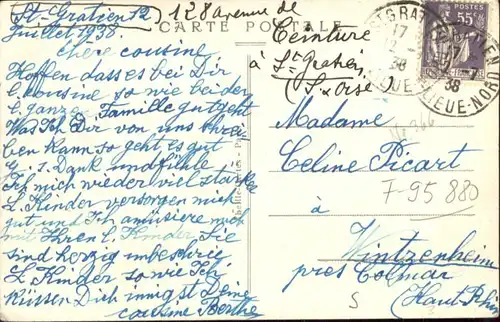 St-Gratien 12
Juillet 1938.
128 avenue de
Ceinture
à St-Gratien
(S. & Oise)
CARTE POSTALE
chère cousine
Hoffen dass es bei Dir
L cousine so wie bei der
L ganze Familie gut geht
Was Ich Dir von uns schrei
ben kann so geht es gut
G. s. Dank und fühle
Ich mich wieder viel stärke
L Kinder versorgen mich
gut und Ich amüsiere mich
mit Ihren L Kinder, Sie
sind herzig
L Kinder so wie Ich
Küssen Dich innigst Deine
cousine Berthe
POSTES
55c
ST GRATIEN
17
12-7
38
Madame
Celine Picart
à
Wintzenheim
près Colmar
(Haut Rhin)
F-95 880
S